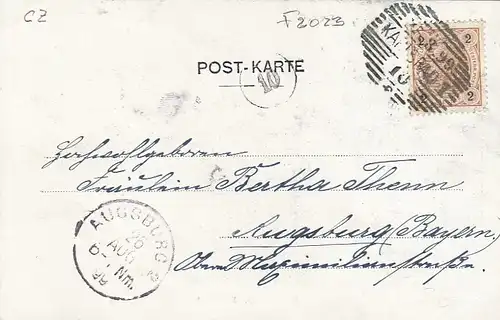 CZ
F2023
2 2
POST-KARTE
10
2
Hochwohlgeboren
Fräulein Bertha Thenn
Augsburg (Bayern)
Obere Maximilianstraße.
AUGSBURG 2
26
AUG
6-7 Nm.
99